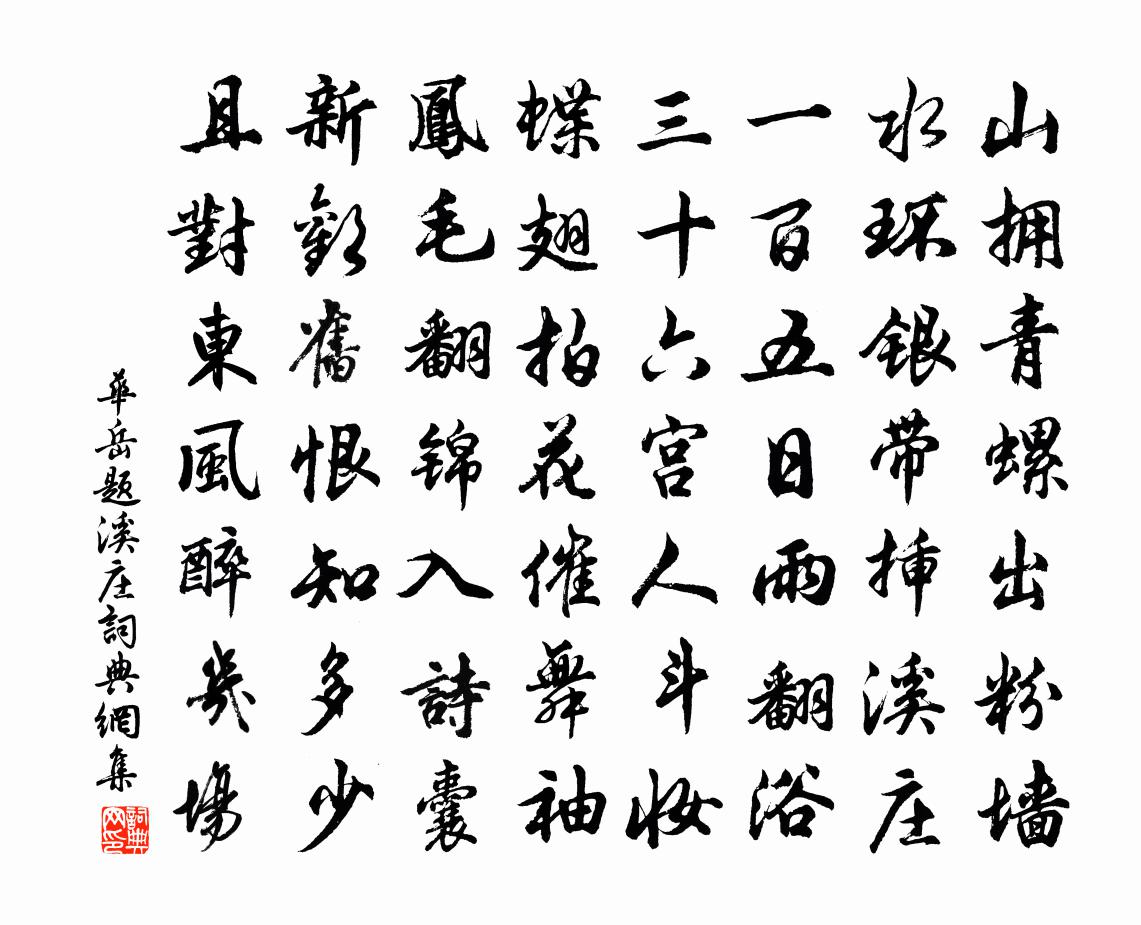 山拥青螺出粉墙
水环银带插溪庄
一百五日雨翻浴
三十六宫人斗妆
蝶翅拍花催舞袖
鳳毛翻锦入詩囊
新歡舊恨知多少
且對東風醉幾場
華岳題溪庄詞典網集
詞典网印